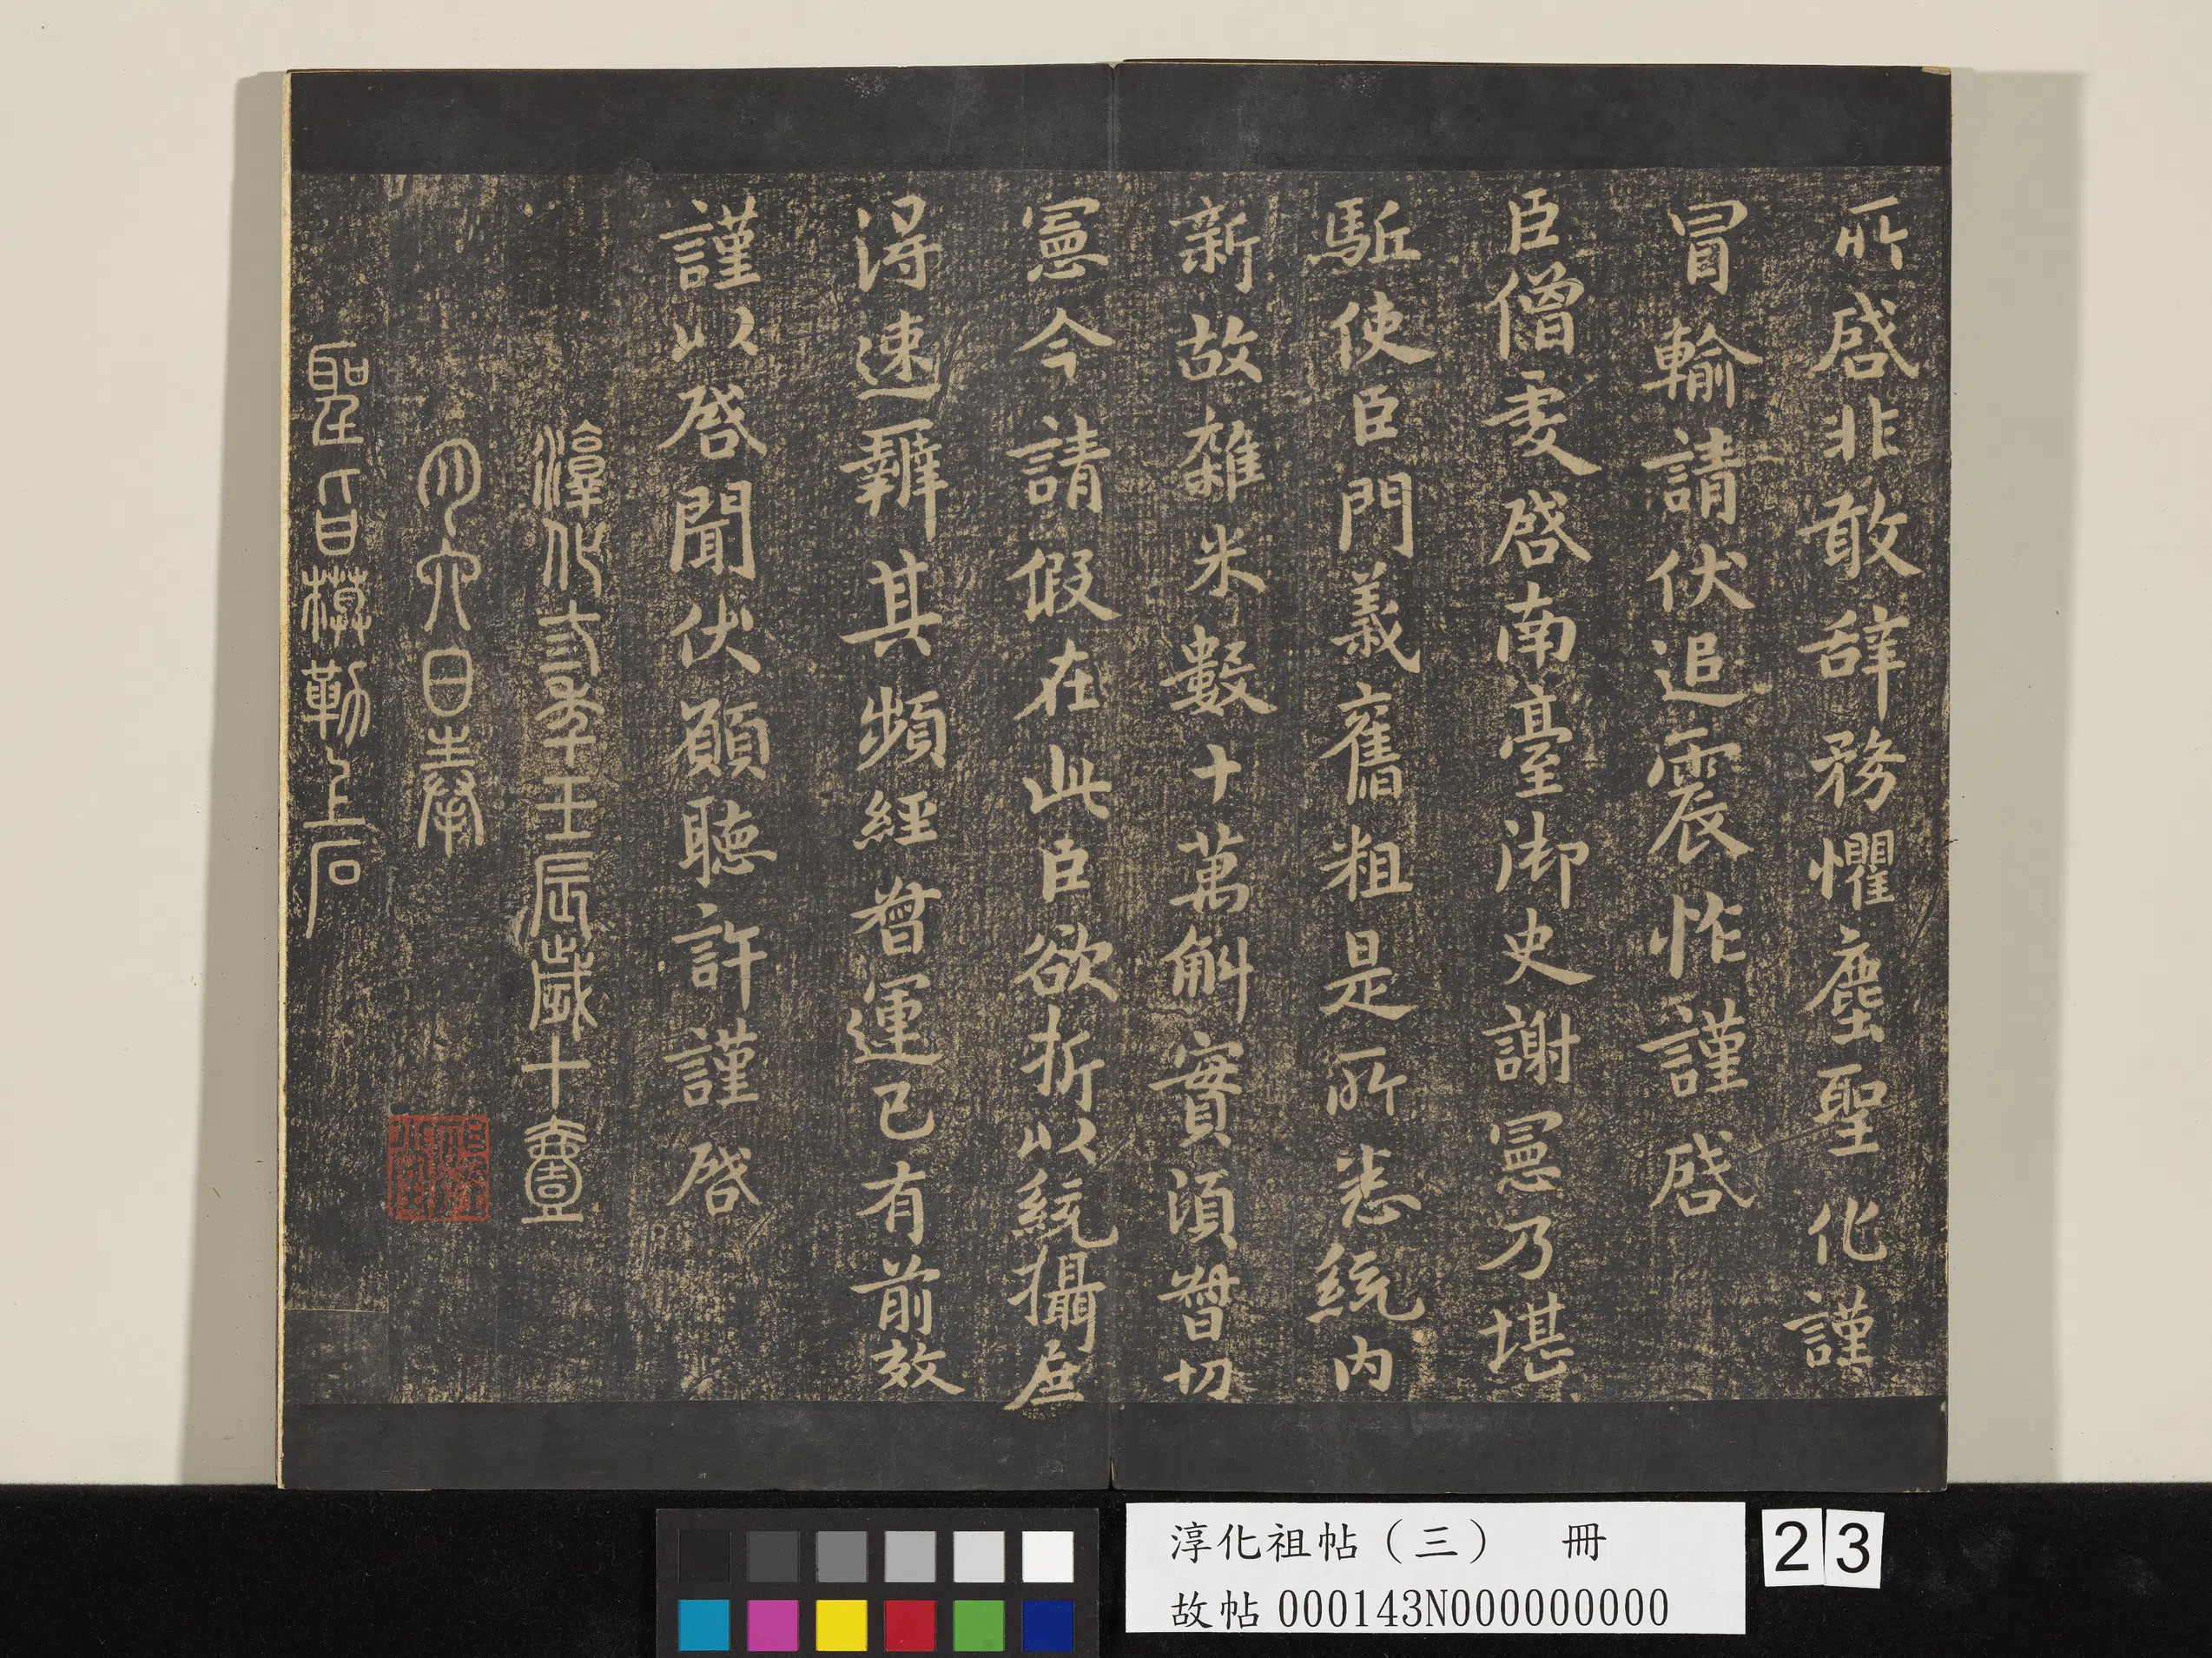 所啓非敢辞務懼塵聖化謹
冒輸請伏追震怍謹啓
臣僧虔啓南臺御史謝憲乃堪
駈使臣門義舊粗是所悉統内
新故雜米數十萬斛實須督切
憲今請假在此臣欲折以統攝庶
得速辦其頻經督運已有前效
謹以啓聞伏願聽許謹啓
淳化三季壬辰歲十壹
月六日奉
聖旨模勒上石
淳化祖帖（三） 冊
故帖000143N000000000
23